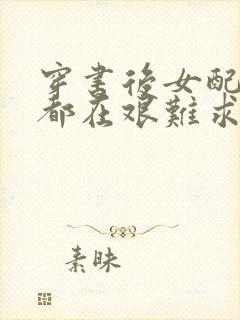 穿書後女配
都在艱難求
素昧